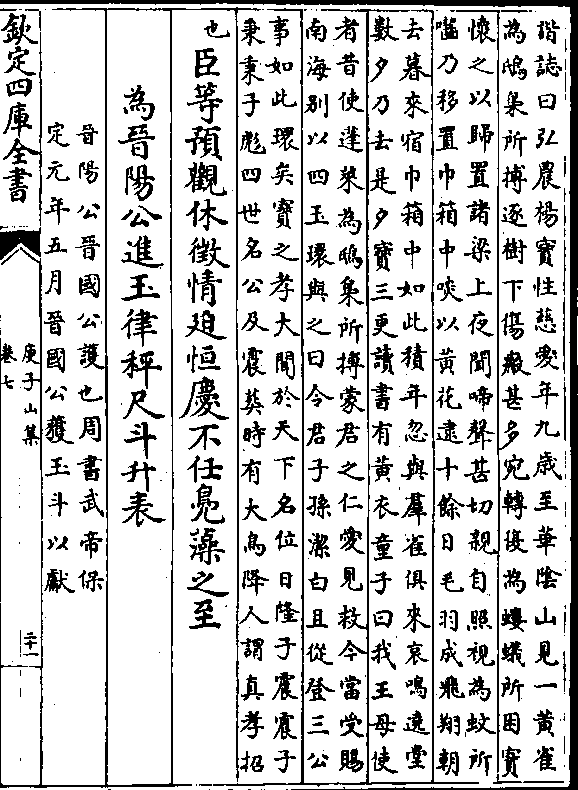 諧誌曰弘農楊寳性慈愛年九歳至華隂山見一黄雀
為鴟梟所搏逐樹下傷瘢甚多宛轉復為螻蟻所困寳
懐之以歸置諸梁上夜聞啼聲甚切親自照視為蚊所
囓乃移置巾箱中啖以黄花逮十餘日毛羽成飛翔朝
去暮來宿巾箱中如此積年忽與羣雀俱來哀鳴遶堂
數夕乃去是夕寳三更讀書有黄衣童子曰我王母使
者昔使蓬萊為鴟梟所搏蒙君之仁愛見救今當受賜
南海别以四玉環與之曰令君子孫潔白且從登三公
事如此環矣寳之孝大聞於天下名位日隆子震震子
秉秉子彪四世名公及震葬時有大鳥降人謂真孝招
也
臣等預觀休徵情廹恒慶不任鳬藻之至
為晉陽公進玉律秤尺斗升表
晉陽公晉國公護也周書武帝保
定元年五月晉國公獲玉斗以獻
欽定四庫全書
庾子山集
卷七
二十一